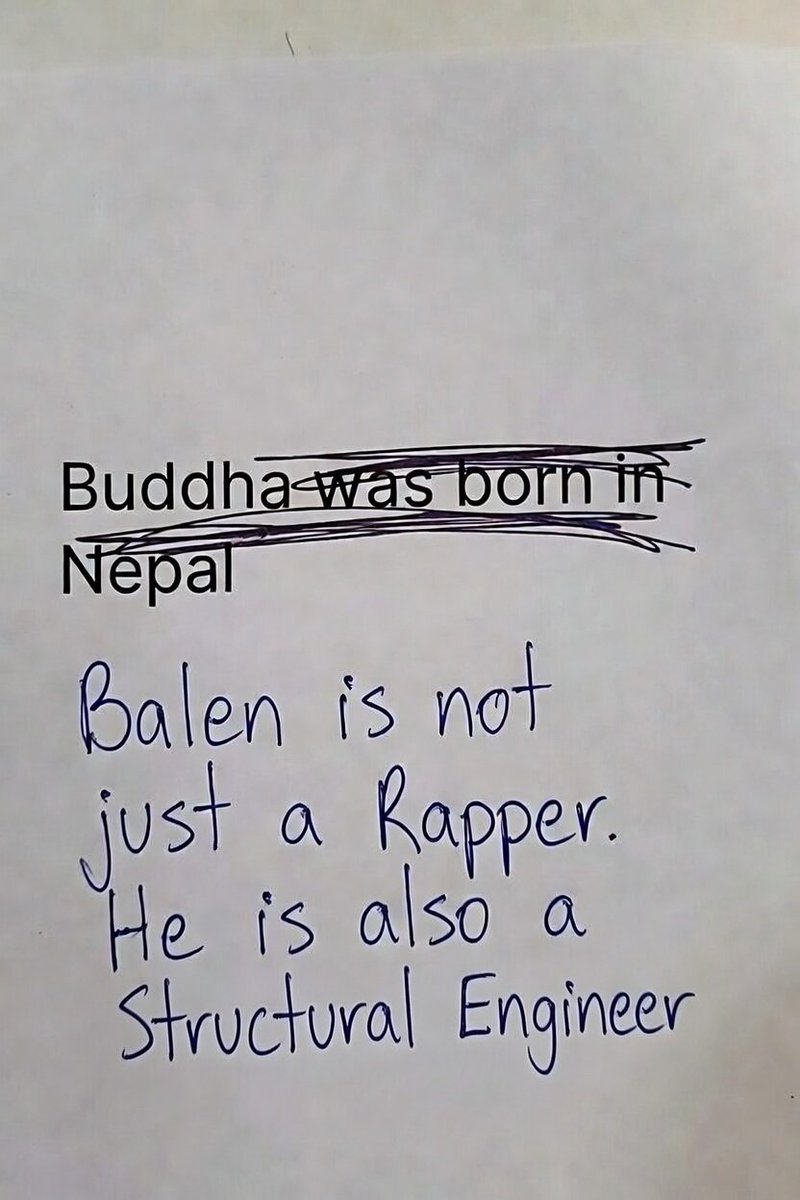 Buddha was born in
Nepal
Balen is not
just a Rapper.
He is also a
Structural Engineer